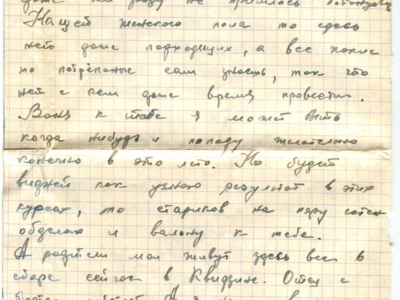 даже ни разу не пришлось
Насчёт женского пола то здесь
нету даже подходящих, а все такие
но потрёпаные сам знаешь, так что
не с кем даже время провести.
Ваня к тебе я может быть
когда нибудь и попаду желательно
конечно в это лето. Но будет
видней как узнаю результат в этих
курсах, то стариков на пару сотен
обделаю и валяну к тебе.
А родители мои живут здесь все в
сборе сейчас в Квидзине. Отец с